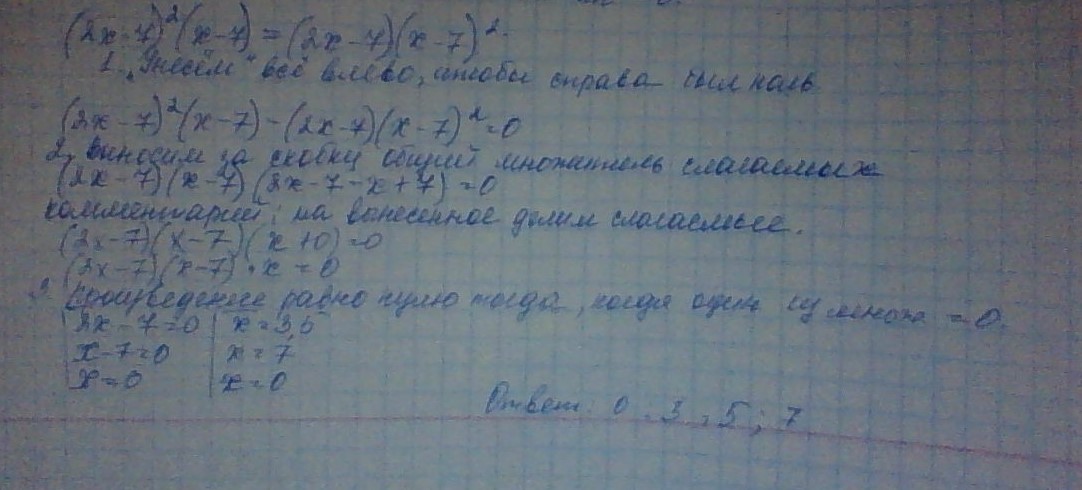 (2x-7)²(x-7) = (2x-7)(x-7)².
1. „Унесём" всё влево, чтобы справа был ноль
(2x-7)²(x-7) - (2x-7)(x-7)² = 0
2. выносим за скобку общий множитель слагаемых
(2x-7)(x-7)(2x-7-x+7) = 0
комментарий: на вынесенное делим слагаемые.
(2x-7)(x-7)(x+0) = 0
(2x-7)(x-7)·x = 0
3. Произведение равно нулю тогда, когда один из множ = 0.
2x-7=0 | x=3,5
x-7=0 | x=7
x=0 | x=0
Ответ: 0 3,5; 7